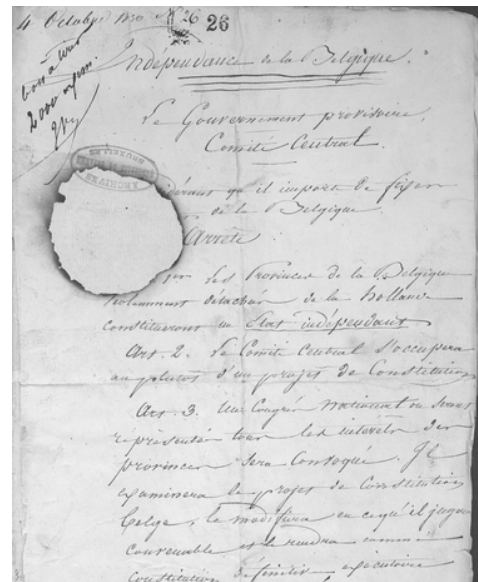 4 Octobre 1830 N° 26 26
bon à tirer
2000 exem.
Indépendance de la Belgique.
Le Gouvernement provisoire,
Comité Central.
ARCHIVES
BRUXELLES
dérant qu'il importe de fixer
de la Belgique.
Arrête
Les Provinces de la Belgique
violemment détachées de la hollande
constitueront un État indépendant
Art. 2. Le Comité Central s'occupera
au plutôt d'un projet de Constitution
Art. 3. Un Congrès national où seront
représentés tous les intérêts des
provinces sera Convoqué. Il
examinera le projet de Constitution
belge, le modifiera en ce qu'il jugera
convenable et le rendra comme
Constitution définitive exécutoire